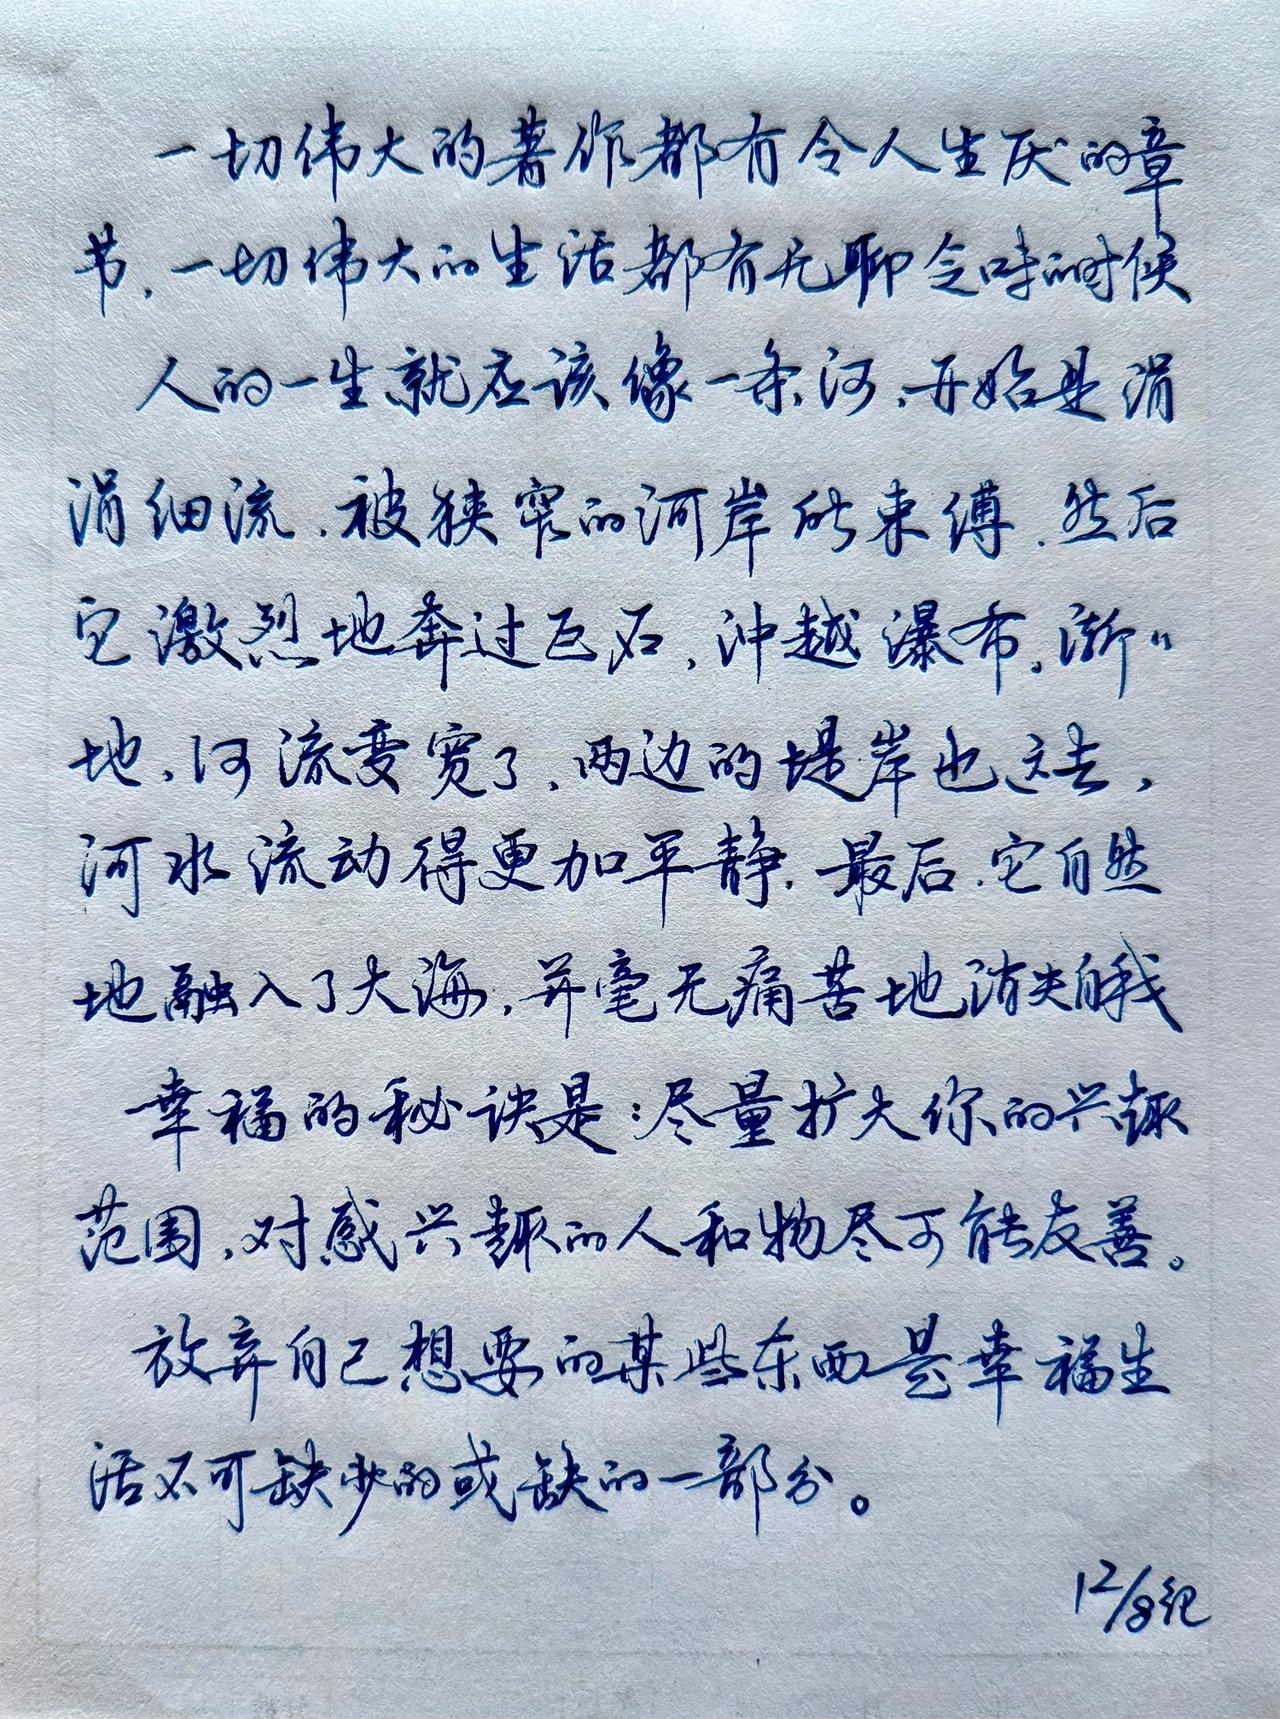 一切伟大的著作都有令人生厌的章
节,一切伟大的生活都有无聊乏味的时候
人的一生就应该像一条河,开始是涓
涓细流,被狭窄的河岸所束缚,然后
它激烈地奔过巨石,冲越瀑布。渐〃
地,河流变宽了,两边的堤岸也远去,
河水流动得更加平静,最后,它自然
地融入了大海,并毫无痛苦地消失自我
幸福的秘诀是:尽量扩大你的兴趣
范围,对感兴趣的人和物尽可能友善。
放弃自己想要的某些东西是幸福生
活不可缺少的或缺的一部分。
12/8纪